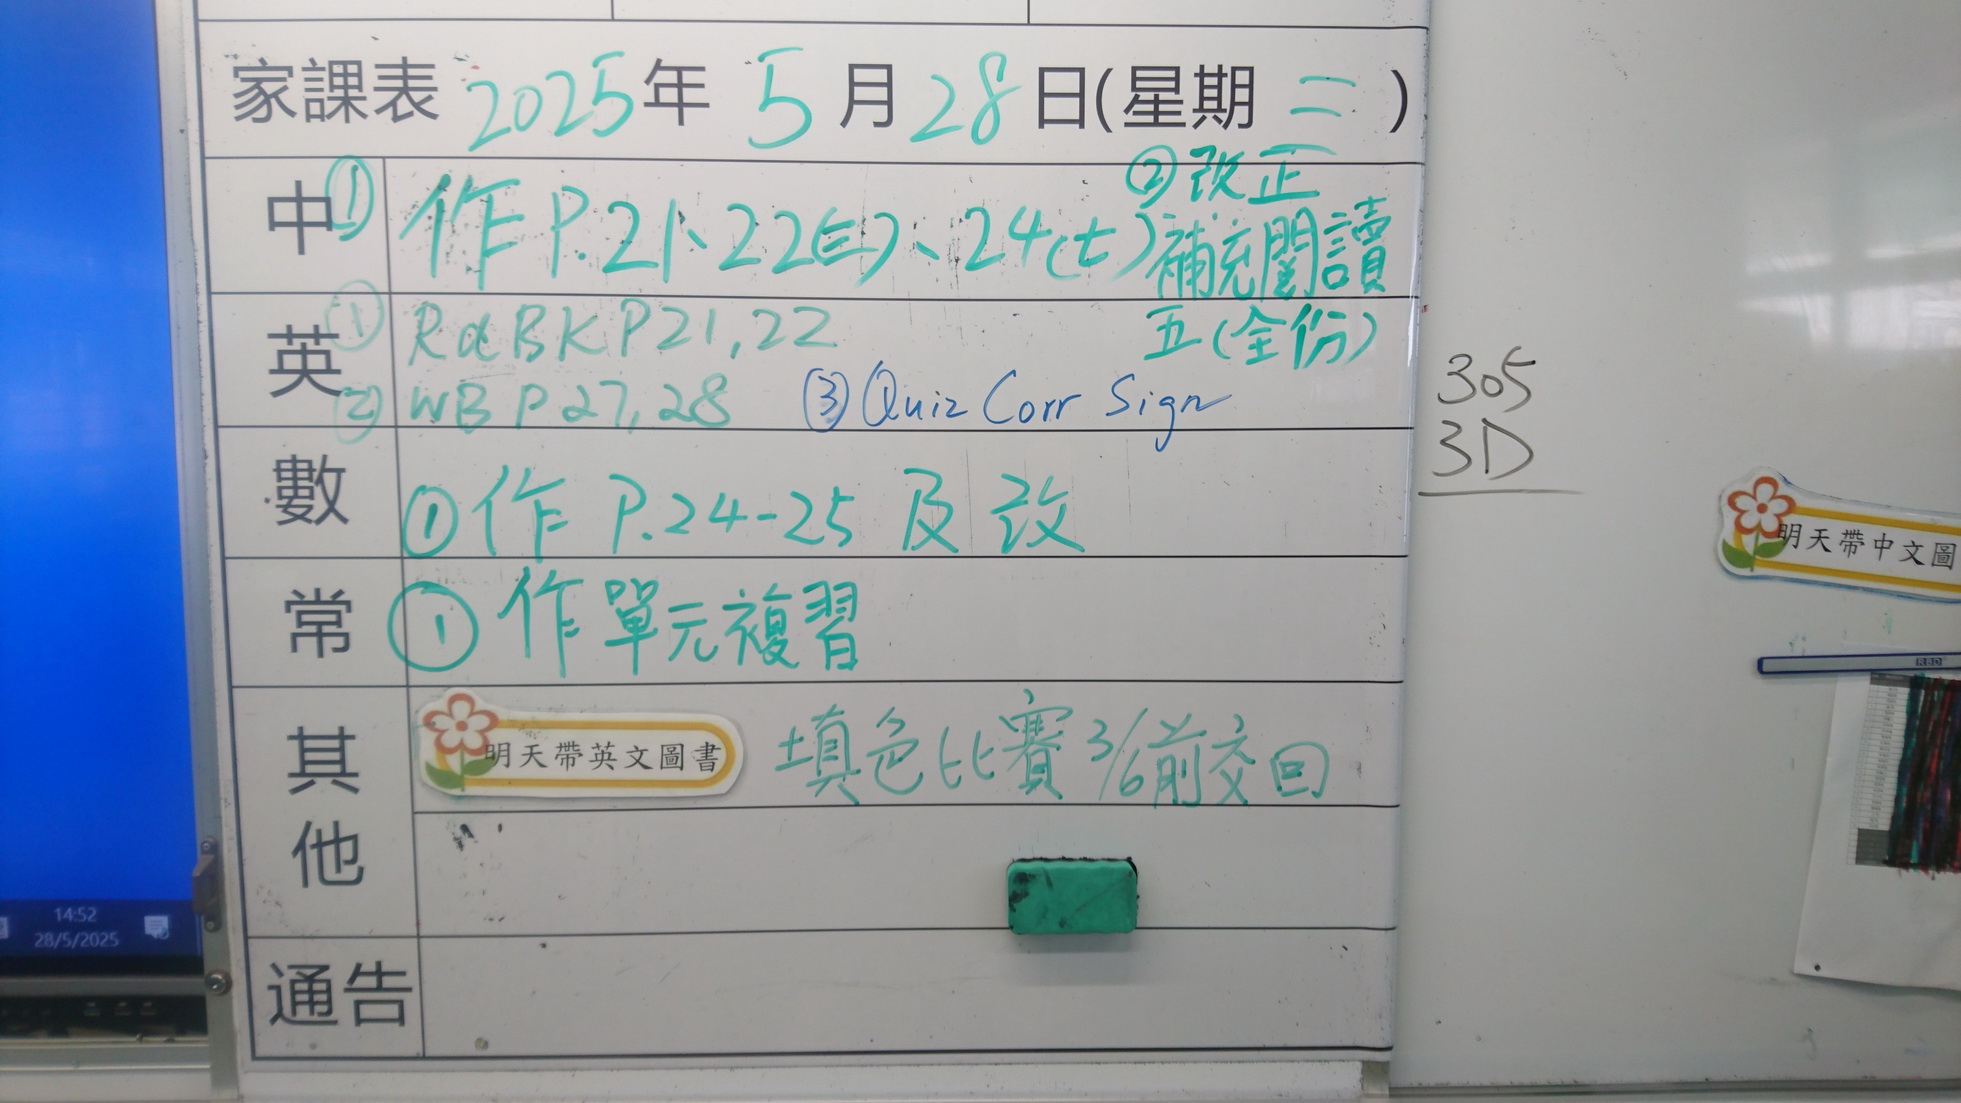 家課表 2025年 5月 28日(星期 二 )
中 ① 作 P.21、22(三)、24(七)
② 改正
補充閱讀
五(全份)
英 ① R&BK P21,22
② WB P 27,28 ③ Quiz Corr Sign
數 ① 作 P.24-25 及 改
常 ① 作 單元複習
其他 明天帶英文圖書 填色比賽 3/6前交回
通告
305
3D
明天帶中文圖
RBD
14:52
28/5/2025